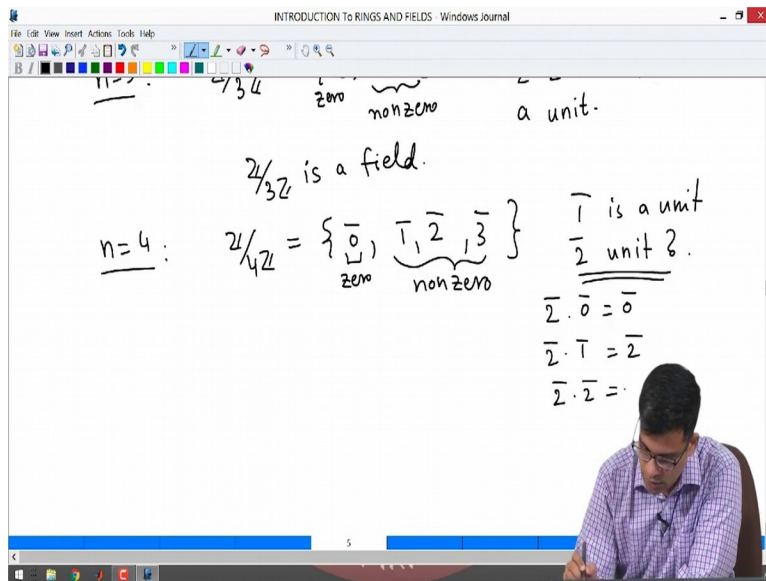 INTRODUCTION To RINGS AND FIELDS - Windows Journal
File Edit View Insert Actions Tools Help
B I
ℤ/3ℤ zero nonzero a unit.
ℤ/3ℤ is a field.
n=4: ℤ/4ℤ = { 0̄, 1̄, 2̄, 3̄ } 1̄ is a unit
zero nonzero 2̄ unit?.
2̄ . 0̄ = 0̄
2̄ . 1̄ = 2̄
2̄ . 2̄ =
5